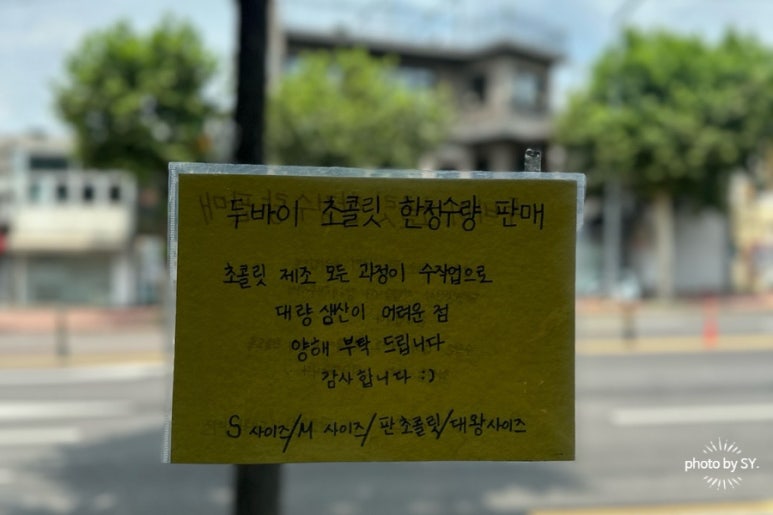 두바이 초콜릿 한정수량 판매
초콜릿 제조 모든 과정이 수작업으로
대량 생산이 어려운 점
양해 부탁 드립니다
감사합니다 :)
S 사이즈/M 사이즈/판초콜릿/대왕사이즈
photo by SY.